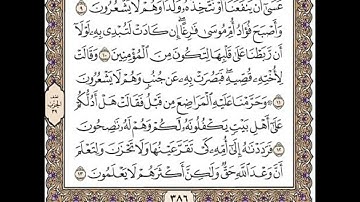 عَسَىٰٓ أَن يَنفَعَنَآ أَوْ نَتَّخِذَهُۥ وَلَدًا وَهُمْ لَا يَشْعُرُونَ ٩
وَأَصْبَحَ فُؤَادُ أُمِّ مُوسَىٰ فَٰرِغًا ۖ إِن كَادَتْ لَتُبْدِى بِهِۦ لَوْلَآ
أَن رَّبَطْنَا عَلَىٰ قَلْبِهَا لِتَكُونَ مِنَ ٱلْمُؤْمِنِينَ ١٠ وَقَالَتْ
لِأُخْتِهِۦ قُصِّيهِ ۖ فَبَصُرَتْ بِهِۦ عَن جُنُبٍ وَهُمْ لَا يَشْعُرُونَ
١١ ۞ وَحَرَّمْنَا عَلَيْهِ ٱلْمَرَاضِعَ مِن قَبْلُ فَقَالَتْ هَلْ أَدُلُّكُمْ
عَلَىٰٓ أَهْلِ بَيْتٍ يَكْفُلُونَهُۥ لَكُمْ وَهُمْ لَهُۥ نَٰصِحُونَ
١٢ فَرَدَدْنَٰهُ إِلَىٰٓ أُمِّهِۦ كَىْ تَقَرَّ عَيْنُهَا وَلَا تَحْزَنَ وَلِتَعْلَمَ
أَنَّ وَعْدَ ٱللَّهِ حَقٌّ وَلَٰكِنَّ أَكْثَرَهُمْ لَا يَعْلَمُونَ ١٣
٣٨٦
الحزب
٣٩